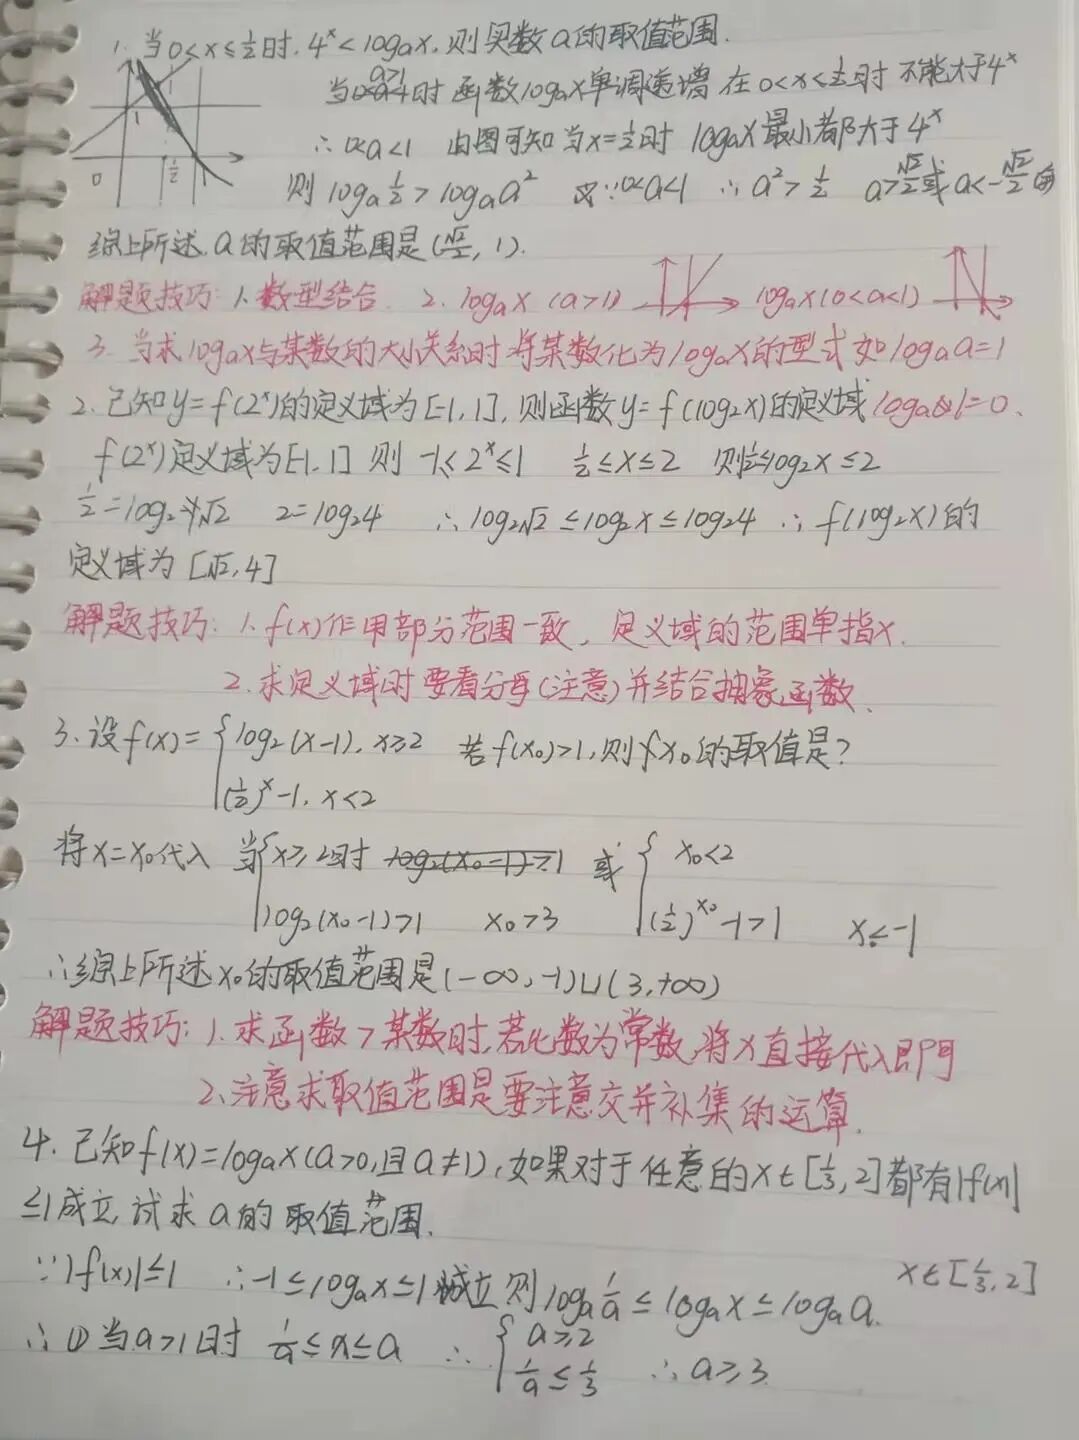 1. 当0<x≤1/2时. 4^x<logₐx. 则实数a的取值范围.
当a>1时 函数logₐx单调递增 在0<x<1/2时 不能大于4^x
∴0<a<1 由图可知当x=1/2时 logₐx最小都大于4^x
则logₐ1/2>logₐa² 又∵0<a<1 ∴a²>1/2 a>√2/2或a<-√2/2
综上所述.a的取值范围是(√2/2, 1).
解题技巧: 1.数型结合. 2. logₐx (a>1) logₐx(0<a<1)
3. 当求logₐx与某数的大小关系时 将某数化为logₐx的型式 如logₐa=1
logₐ1=0.
2. 已知y=f(2^x)的定义域为[-1,1], 则函数y=f(log₂x)的定义域
f(2^x)定义域为[-1,1] 则 -1≤2^x≤1 1/2≤x≤2 则1/2≤log₂x≤2
1/2=log₂√2 2=log₂4 ∴log₂√2≤log₂x≤log₂4 ∴f(log₂x)的
定义域为[√2,4]
解题技巧: 1. f(x)作用部分范围一致, 定义域的范围单指x.
2. 求定义域时要看分母(注意)并结合抽象函数.
3. 设f(x)={log₂(x-1), x≥2 若f(x₀)>1,则x₀的取值是?
(1/2)^x-1, x<2
将x=x₀代入 当{x≥2时 log₂(x₀-1)>1 或{x₀<2
log₂(x₀-1)>1 x₀>3 (1/2)^x₀-1>1 x<-1
∴综上所述x₀的取值范围是(-∞,-1)∪(3,+∞)
解题技巧: 1.求函数>某数时,若此数为常数,将x直接代入即可
2.注意求取值范围是要注意交并补集的运算.
4. 已知f(x)=logₐx(a>0,且a≠1), 如果对于任意的x∈[1/3,2]都有|f(x)|
≤1成立,试求a的取值范围.
∵|f(x)|≤1 ∴-1≤logₐx≤1 成立 则logₐ1/a≤logₐx≤logₐa. x∈[1/3,2]
∴①当a>1时 1/a≤x≤a ∴{a≥2
1/a≤1/3 ∴a≥3